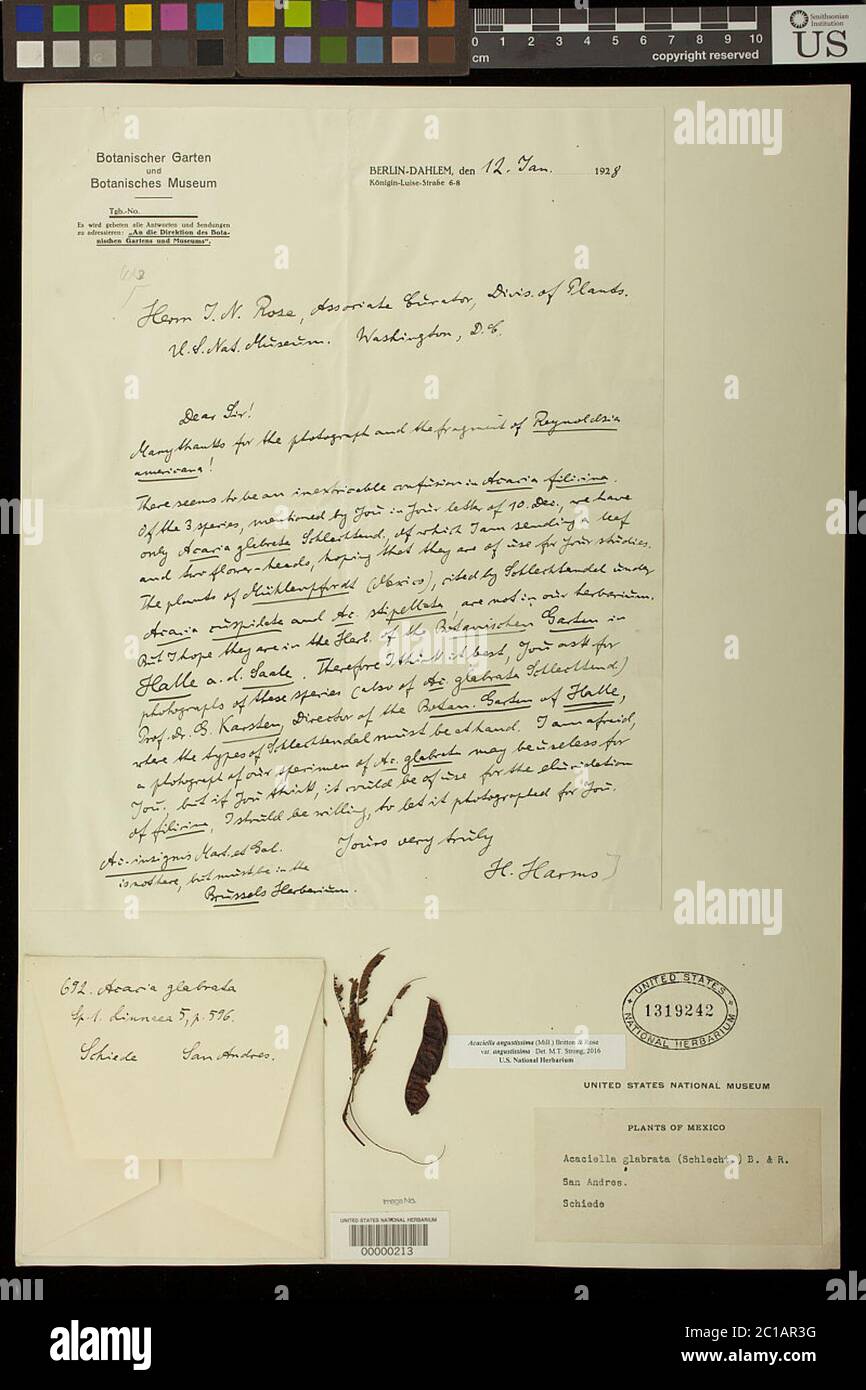 0 1 2 3 4 5 6 7 8 9 10
cm
copyright reserved
Smithsonian
Institution
US
Botanischer Garten
und
Botanisches Museum
Tgb.-No.
Es wird gebeten alle Antworten und Sendungen
zu adressieren: „An die Direktion des Bota-
nischen Gartens und Museums“.
BERLIN-DAHLEM, den 12. Jan. 1928
Königin-Luise-Straße 6-8
Herrn J. N. Rose, Associate Curator, Divis. of Plants.
U. S. Nat. Museum. Washington, D. C.
Dear Sir!
Many thanks for the photograph and the fragment of Reynoldsia
americana!
There seems to be an inextricable confusion in Acacia filicina.
Of the 3 species, mentioned by You in Your letter of 10. Dec., we have
only Acacia glabrata Schlechtend., of which I am sending a leaf
and two flower-heads, hoping that they are of use for Your studies.
The plants of Mühlenpfordt (Mexico), cited by Schlechtendal under
Acacia cuspidata and Ac. stipellata, are not in our herbarium.
But I hope they are in the Herb. of the Botanischen Garten in
Halle a. d. Saale. Therefore I think it best, You ask for
photographs of these species (also of Ac. glabrata Schlechtend.)
Prof. Dr. G. Karsten, Director of the Botan. Garten of Halle,
where the types of Schlechtendal must be at hand. I am afraid,
a photograph of our specimen of Ac. glabrata may be useless for
You; but if You think, it could be of use for the elucidation
of filicina, I should be willing, to let it photographed for You.
Yours very truly
H. Harms
Ac. insignis Mart. et Gal.
is not here, but must be in the
Brussels Herbarium.
692. Acacia glabrata
Sp. 1. Linnaea 5, p. 596.
Schiede San Andres.
Acaciella angustissima (Mill.) Britton & Rose
var. angustissima Det. M.T. Strong, 2016
U.S. National Herbarium
UNITED STATES
1319242
NATIONAL HERBARIUM
UNITED STATES NATIONAL MUSEUM
PLANTS OF MEXICO
Acaciella glabrata (Schlecht.) B. & R.
San Andres.
Schiede
Image No.
UNITED STATES NATIONAL HERBARIUM
00000213
alamy
Image ID: 2C1AR3G
www.alamy.com